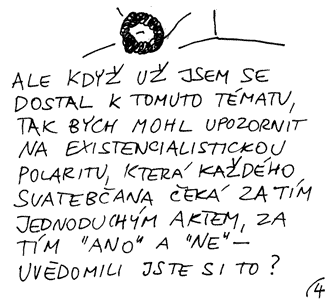 ALE KDYŽ UŽ JSEM SE
DOSTAL K TOMUTO TÉMATU,
TAK BYCH MOHL UPOZORNIT
NA EXISTENCIALISTICKOU
POLARITU, KTERÁ KAŽDÉHO
SVATEBČANA ČEKÁ ZA TÍM
JEDNODUCHÝM AKTEM, ZA
TÍM "ANO" A "NE" –
UVĚDOMILI JSTE SI TO?
4